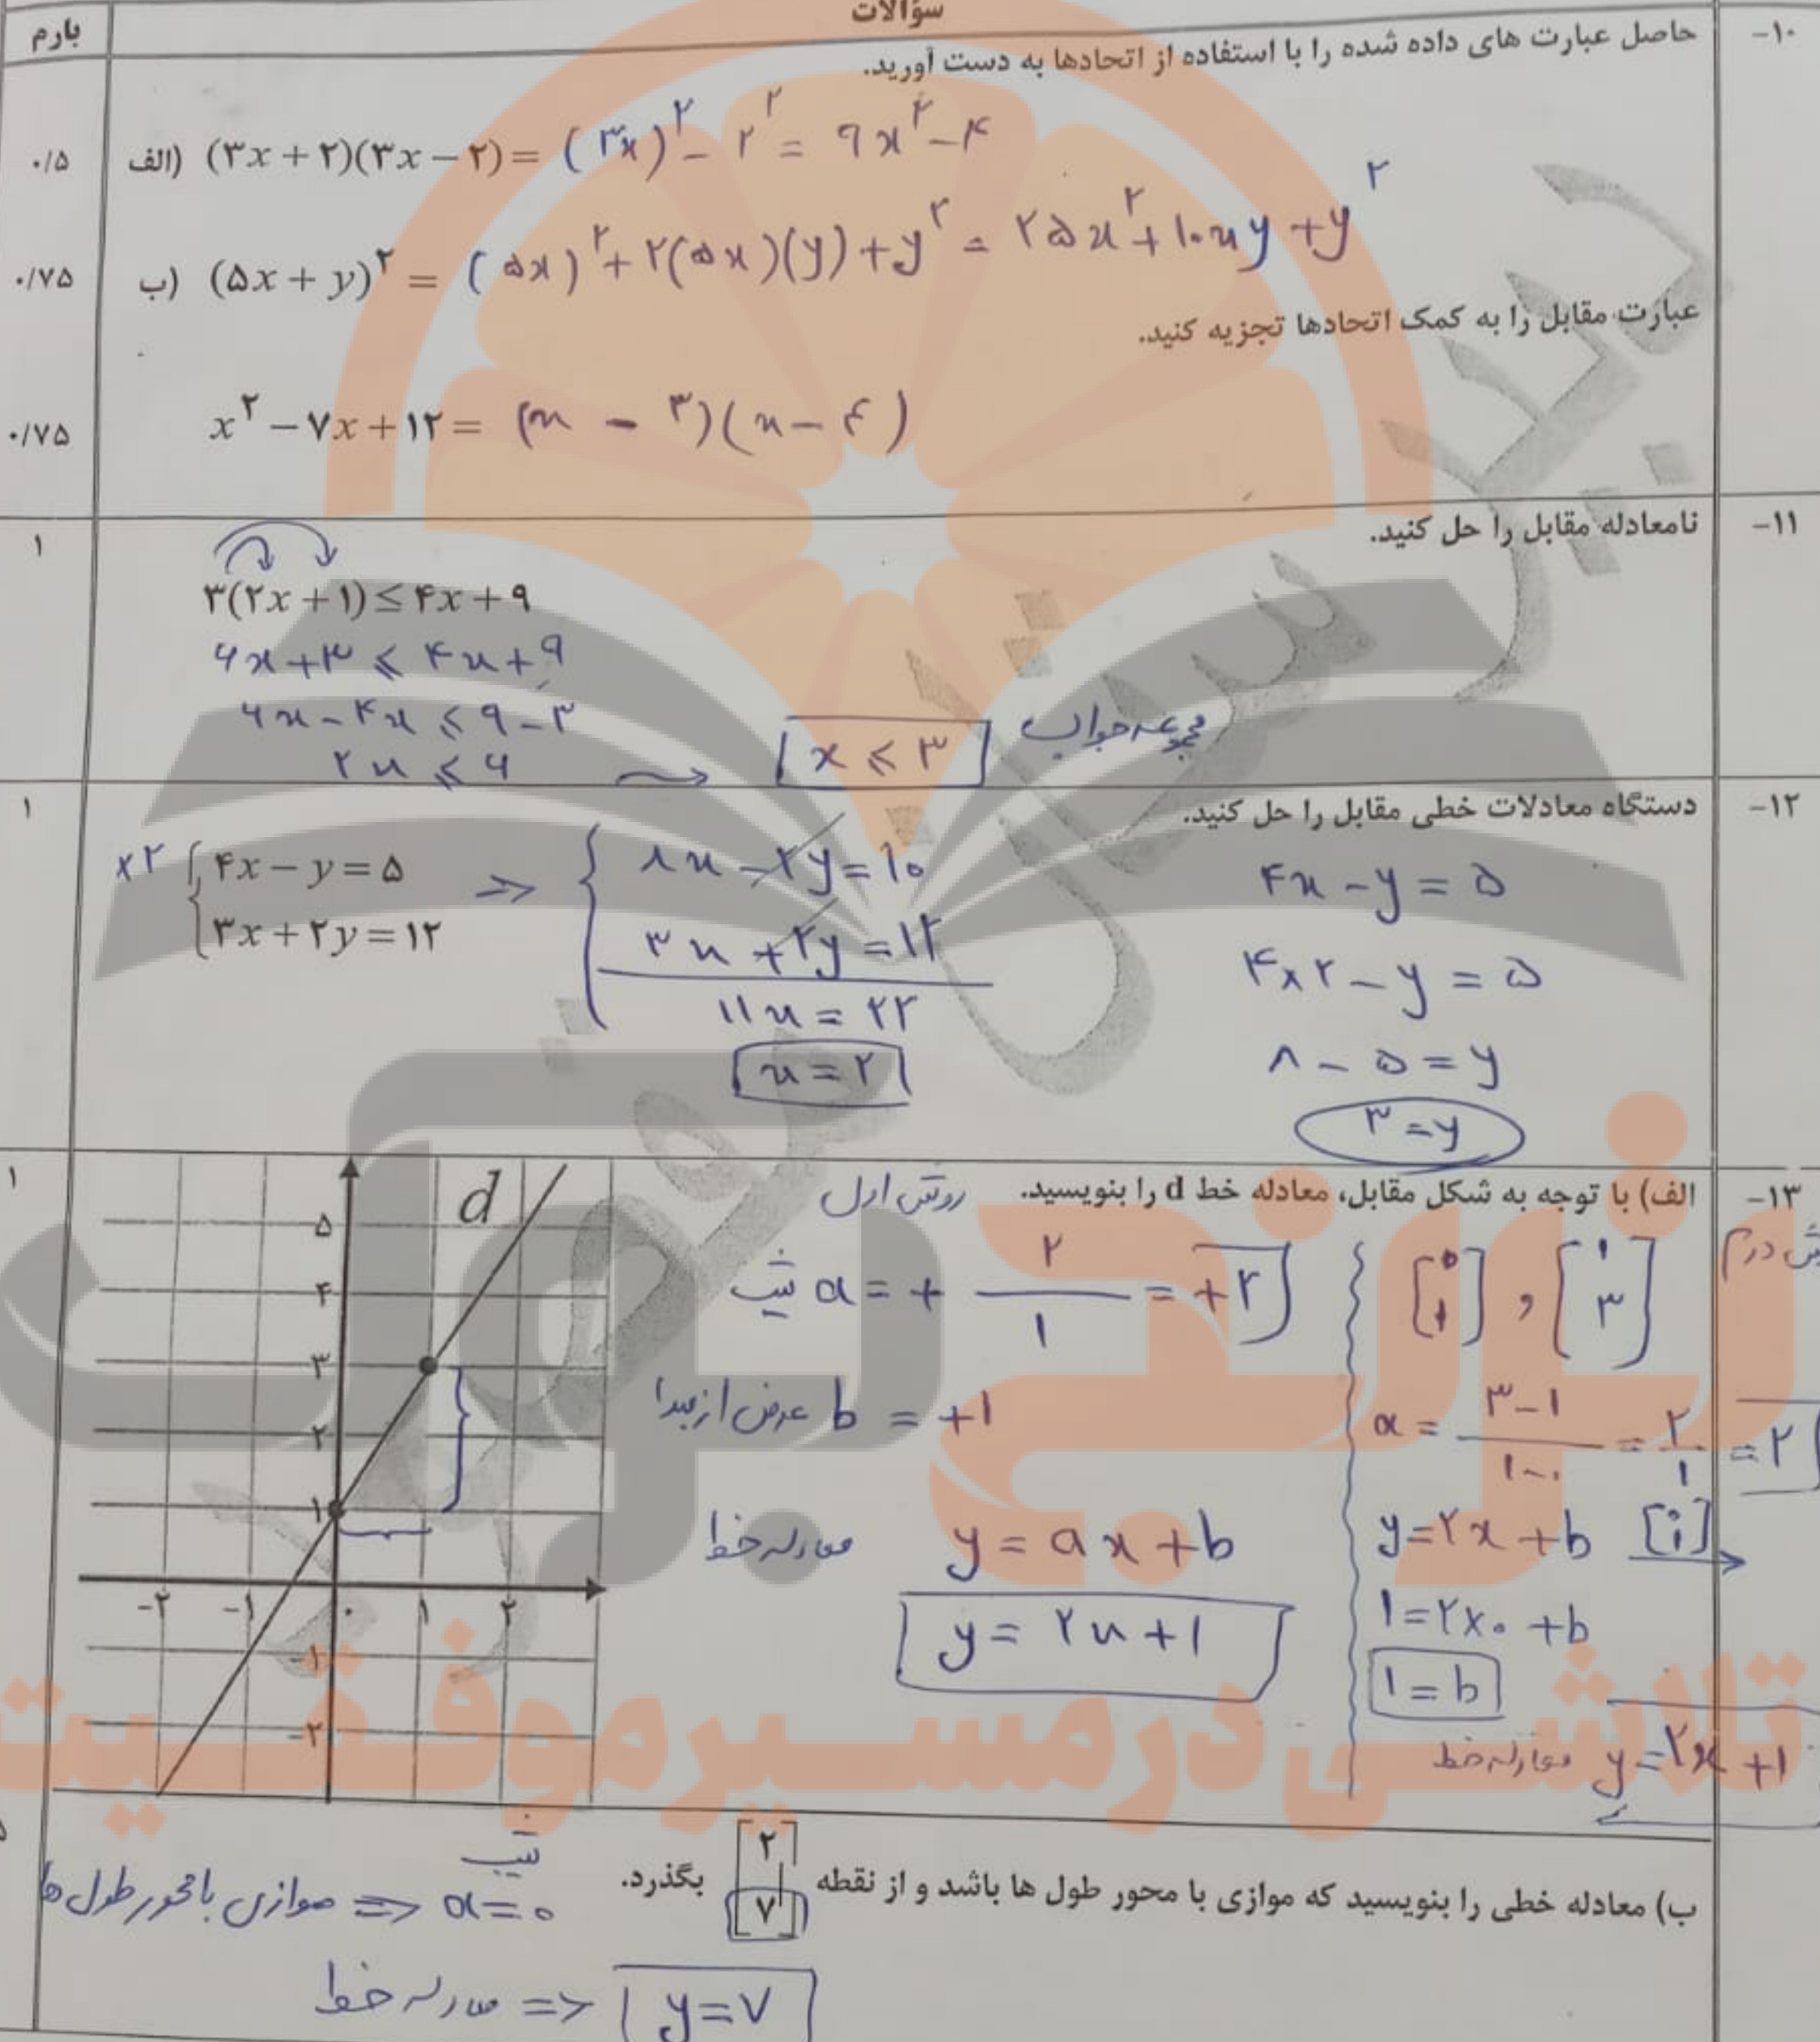 سؤالات
بارم
۱۰- حاصل عبارت های داده شده را با استفاده از اتحادها به دست آورید.
۰/۵
الف) (۳x + ۲)(۳x − ۲) = (۳x)^۲ − ۲^۲ = ۹x^۲ − ۴
۰/۷۵
ب) (۵x + y)^۲ = (۵x)^۲ + ۲(۵x)(y) + y^۲ = ۲۵x^۲ + ۱۰xy + y^۲
عبارت مقابل را به کمک اتحادها تجزیه کنید.
۰/۷۵
x^۲ − ۷x + ۱۲ = (x − ۳)(x − ۴)
۱۱- نامعادله مقابل را حل کنید.
۱
۳(۲x + ۱) ≤ ۴x + ۹
۶x + ۳ ≤ ۴x + ۹
۶x − ۴x ≤ ۹ − ۳
۲x ≤ ۶ → x ≤ ۳ مجموعه جواب
۱۲- دستگاه معادلات خطی مقابل را حل کنید.
۱
×۲ { ۴x − y = ۵
۳x + ۲y = ۱۲
⇒ { ۸x − ۲y = ۱۰
۳x + ۲y = ۱۲
۱۱x = ۲۲
x = ۲
۴x − y = ۵
۴×۲ − y = ۵
۸ − ۵ = y
۳ = y
۱۳- الف) با توجه به شکل مقابل، معادله خط d را بنویسید.
۱
روش اول
شیب a = + ۲/۱ = +۲
عرض از مبدا b = +۱
معادله خط y = ax + b
y = ۲x + ۱
روش دوم
[۰ ۱] , [۱ ۳]
a = (۳−۱)/(۱−۰) = ۲/۱ = ۲
y = ۲x + b [۰ ۱] →
۱ = ۲×۰ + b
۱ = b
معادله خط y = ۲x + ۱
d
۵
۴
۳
۲
۱
−۲ −۱ ۰ ۱ ۲
−۱
−۲
ب) معادله خطی را بنویسید که موازی با محور طول ها باشد و از نقطه [۲ ۷] بگذرد.
شیب
موازی با محور طول ها ⇒ a = ۰
معادله خط ⇒ y = ۷
ترنج بوک
تلاشی در مسیر موفقیت